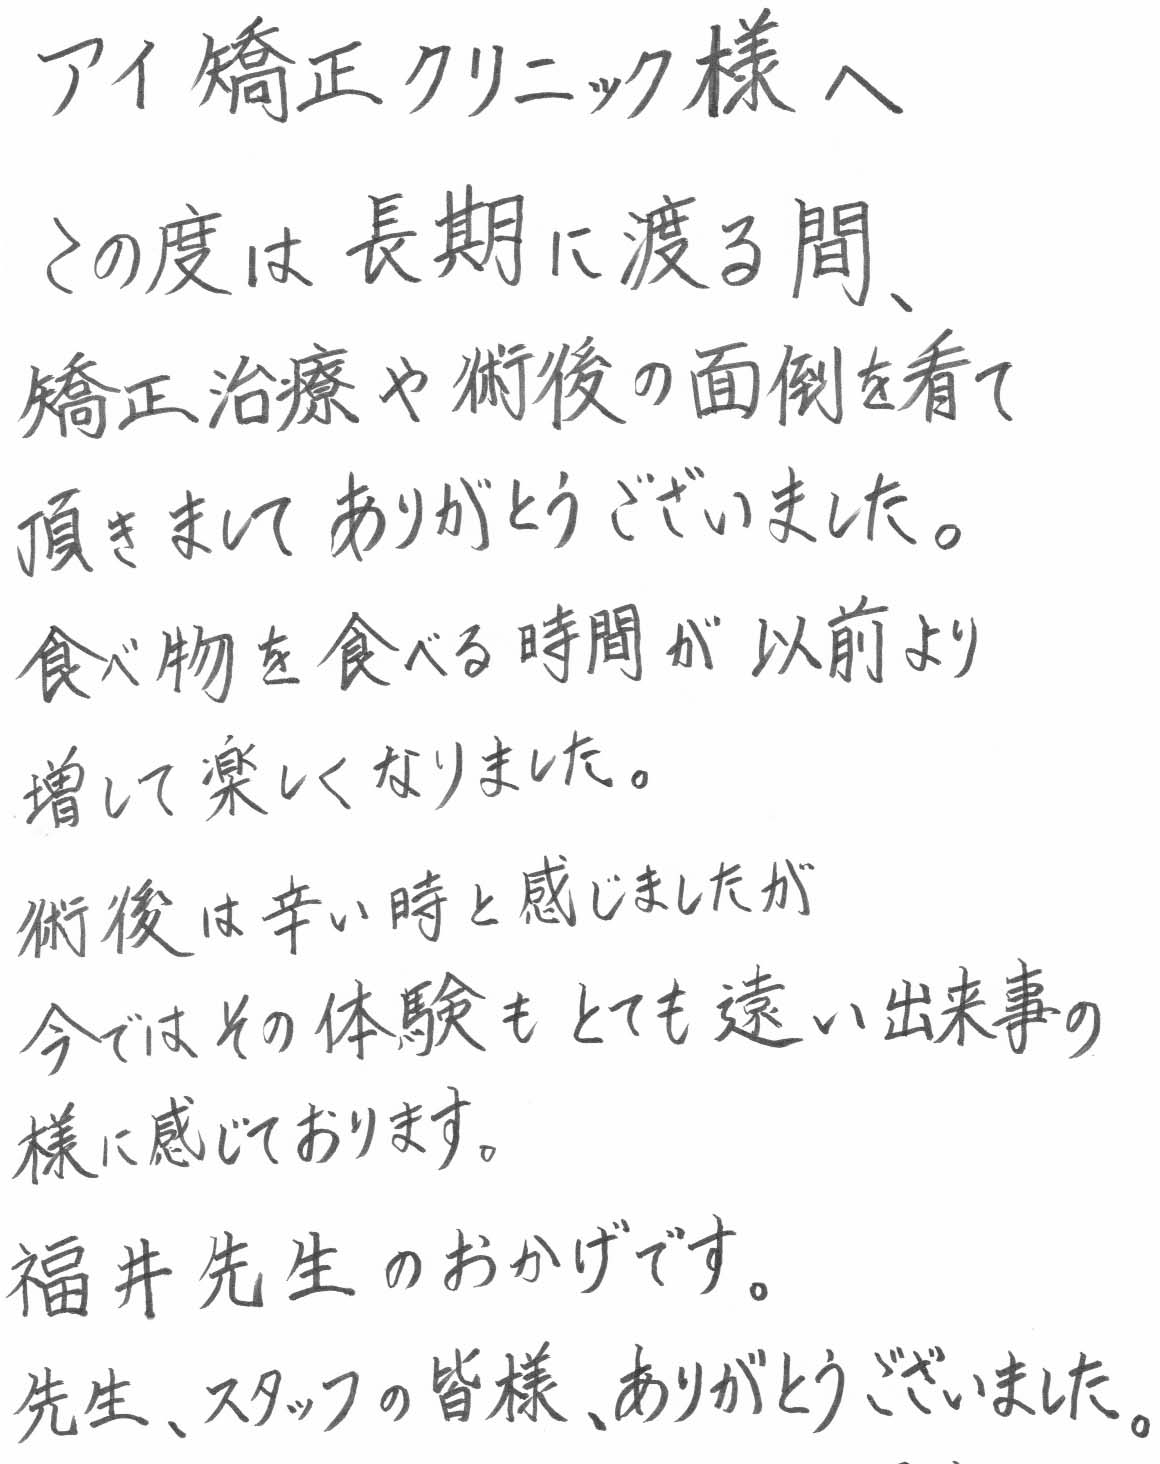 アイ矯正クリニック様へ
この度は長期に渡る間、
矯正治療や術後の面倒を看て
頂きましてありがとうございました。
食べ物を食べる時間が以前より
増して楽しくなりました。
術後は辛い時と感じましたが
今ではその体験もとても遠い出来事の
様に感じております。
福井先生のおかげです。
先生、スタッフの皆様、ありがとうございました。